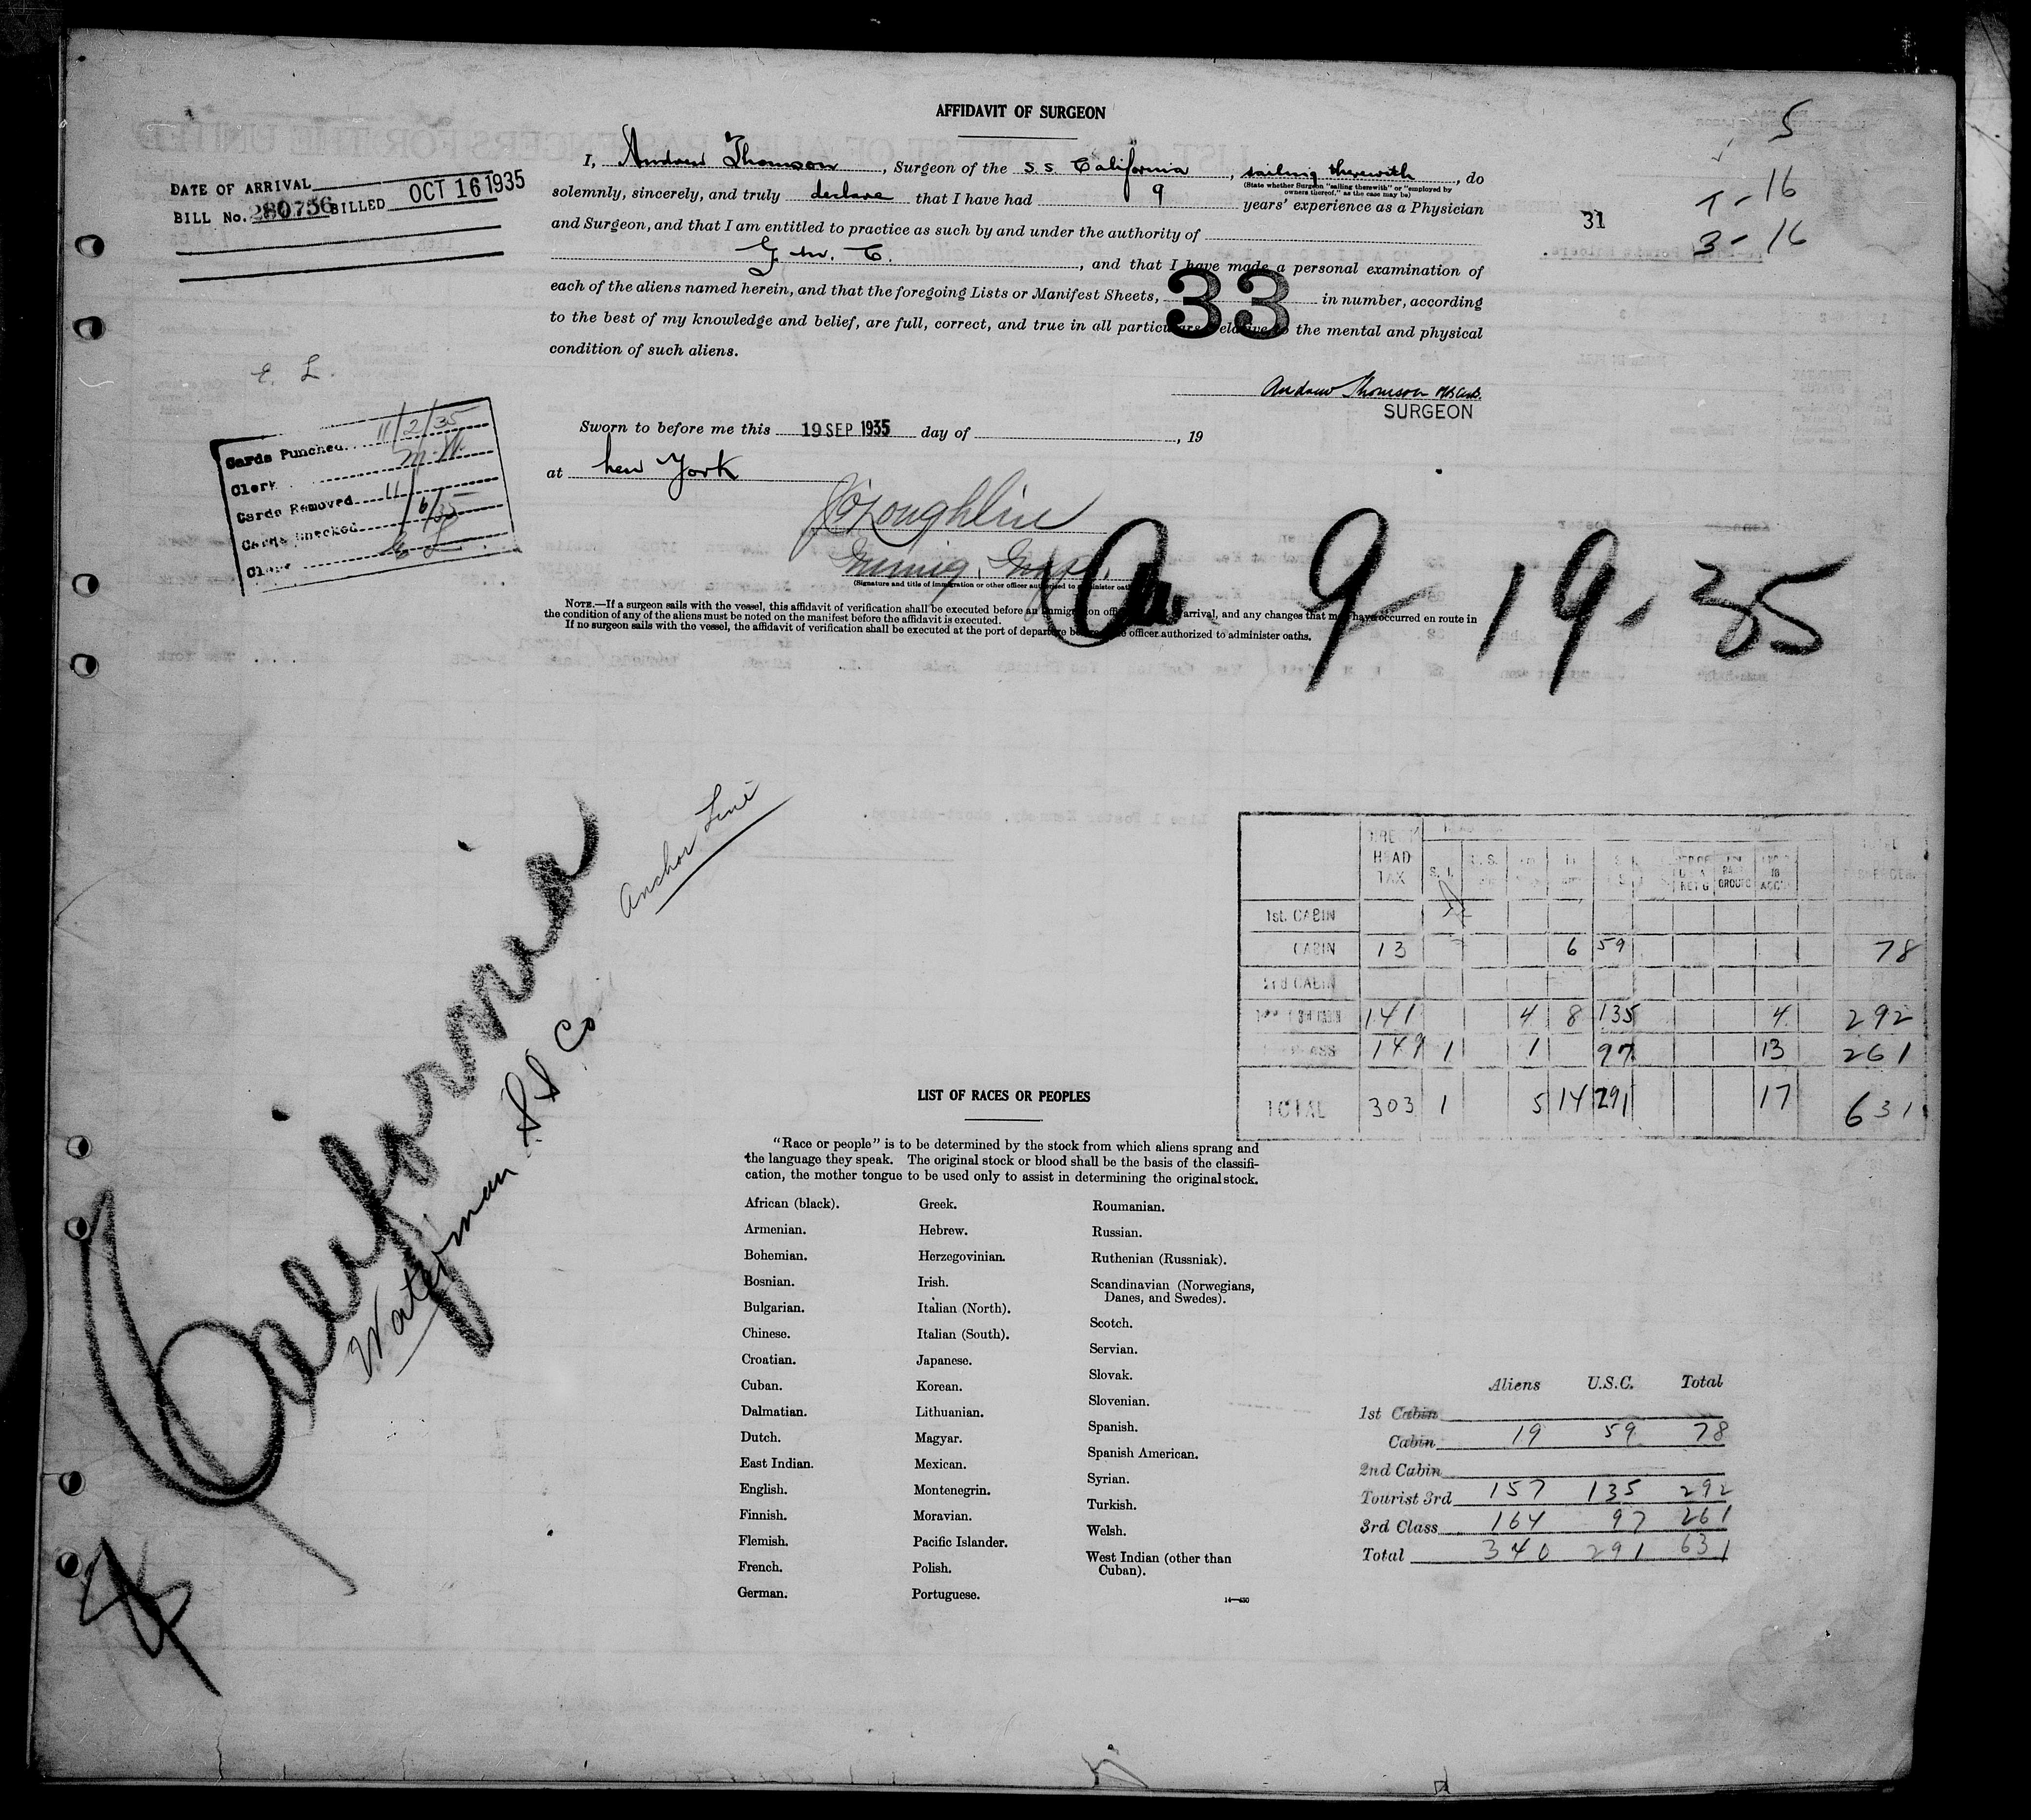 AFFIDAVIT OF SURGEON
I, Andrew Thomson, Surgeon of the S.S. California, sailing therewith, do
(State whether Surgeon "sailing therewith" or "employed by
owners thereof," as the case may be)
solemnly, sincerely, and truly declare that I have had 9 years' experience as a Physician
and Surgeon, and that I am entitled to practice as such by and under the authority of
G. M. C., and that I have made a personal examination of
each of the aliens named herein, and that the foregoing Lists or Manifest Sheets, 33 in number, according
to the best of my knowledge and belief, are full, correct, and true in all particulars relative to the mental and physical
condition of such aliens.
Andrew Thomson
SURGEON
Sworn to before me this 19 SEP 1935 day of , 19
at New York
(Signature and title of immigration or other officer authorized to administer oaths)
NOTE.—If a surgeon sails with the vessel, this affidavit of verification shall be executed before an immigration officer arrival, and any changes that may have occurred en route in
the condition of any of the aliens must be noted on the manifest before the affidavit is executed.
If no surgeon sails with the vessel, the affidavit of verification shall be executed at the port of departure officer authorized to administer oaths.
DATE OF ARRIVAL
BILL No. 280756 BILLED OCT 16 1935
31
5
1-16
3-16
E. L.
Cards Punched 11/2/35
Clerk
Cards Removed 11/6/35
Cards Checked
Clerk
9-19-35
Anchor Line
California
Waterman S S Co
HEAD TAX S. I.
1st. CABIN
CABIN 13 6 59 78
2nd CABIN
141 4 8 135 4 292
149 1 1 97 13 261
TOTAL 303 1 5 14 291 17 631
LIST OF RACES OR PEOPLES
"Race or people" is to be determined by the stock from which aliens sprang and
the language they speak. The original stock or blood shall be the basis of the classifi-
cation, the mother tongue to be used only to assist in determining the original stock.
African (black).
Armenian.
Bohemian.
Bosnian.
Bulgarian.
Chinese.
Croatian.
Cuban.
Dalmatian.
Dutch.
East Indian.
English.
Finnish.
Flemish.
French.
German.
Greek.
Hebrew.
Herzegovinian.
Irish.
Italian (North).
Italian (South).
Japanese.
Korean.
Lithuanian.
Magyar.
Mexican.
Montenegrin.
Moravian.
Pacific Islander.
Polish.
Portuguese.
Roumanian.
Russian.
Ruthenian (Russniak).
Scandinavian (Norwegians,
Danes, and Swedes).
Scotch.
Servian.
Slovak.
Slovenian.
Spanish.
Spanish American.
Syrian.
Turkish.
Welsh.
West Indian (other than
Cuban).
14—430
Aliens U.S.C. Total
1st Cabin
Cabin 19 59 78
2nd Cabin
Tourist 3rd 157 135 292
3rd Class 164 97 261
Total 340 291 631